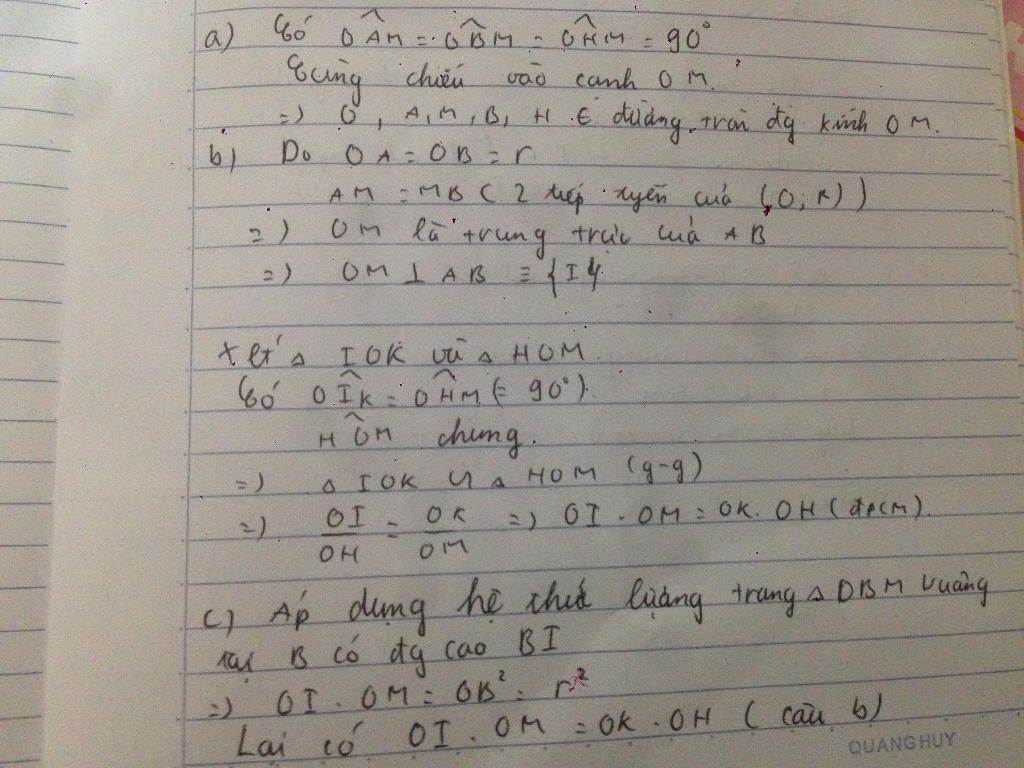 a) Có OÂM = OB̂M = OĤM = 90°
Cùng chiếu vào cạnh OM.
=> O, A, M, B, H ∈ đường tròn đg kính OM.
b) Do OA = OB = r
AM = MB (2 tiếp tuyến của (O; R))
=> OM là trung trực của AB
=> OM ⊥ AB ≡ {I}
Xét △ IOK và △ HOM
Có OÎK = OĤM (= 90°).
HÔM chung.
=> △ IOK ∽ △ HOM (g-g)
=> OI/OH = OK/OM => OI . OM = OK . OH (đpcm).
c) Áp dụng hệ thức lượng trong △ OBM vuông
tại B có đg cao BI
=> OI . OM = OB² = r²
Lại có OI . OM = OK . OH (câu b)
QUANG HUY